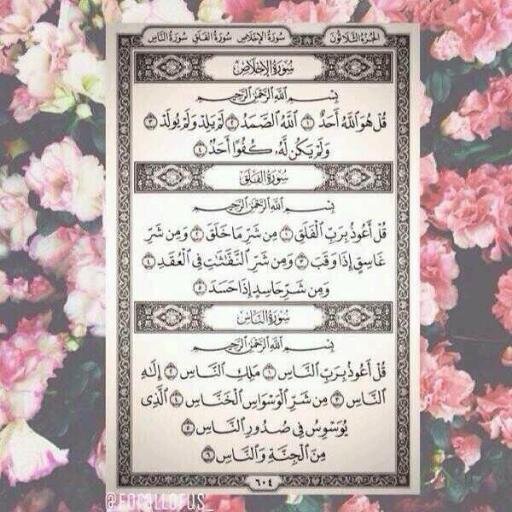 الجزء الثلاثون سورة الإخلاص سورة الفلق سورة الناس
سورة الإخلاص
بسم الله الرحمن الرحيم
قُلْ هُوَ ٱللَّهُ أَحَدٌ ١ ٱللَّهُ ٱلصَّمَدُ ٢ لَمْ يَلِدْ وَلَمْ يُولَدْ ٣
وَلَمْ يَكُن لَّهُۥ كُفُوًا أَحَدٌ ٤
سورة الفلق
بسم الله الرحمن الرحيم
قُلْ أَعُوذُ بِرَبِّ ٱلْفَلَقِ ١ مِن شَرِّ مَا خَلَقَ ٢ وَمِن شَرِّ
غَاسِقٍ إِذَا وَقَبَ ٣ وَمِن شَرِّ ٱلنَّفَّٰثَٰتِ فِى ٱلْعُقَدِ ٤
وَمِن شَرِّ حَاسِدٍ إِذَا حَسَدَ ٥
سورة الناس
بسم الله الرحمن الرحيم
قُلْ أَعُوذُ بِرَبِّ ٱلنَّاسِ ١ مَلِكِ ٱلنَّاسِ ٢ إِلَٰهِ
ٱلنَّاسِ ٣ مِن شَرِّ ٱلْوَسْوَاسِ ٱلْخَنَّاسِ ٤ ٱلَّذِى
يُوَسْوِسُ فِى صُدُورِ ٱلنَّاسِ ٥
مِنَ ٱلْجِنَّةِ وَٱلنَّاسِ ٦
٦٠٤